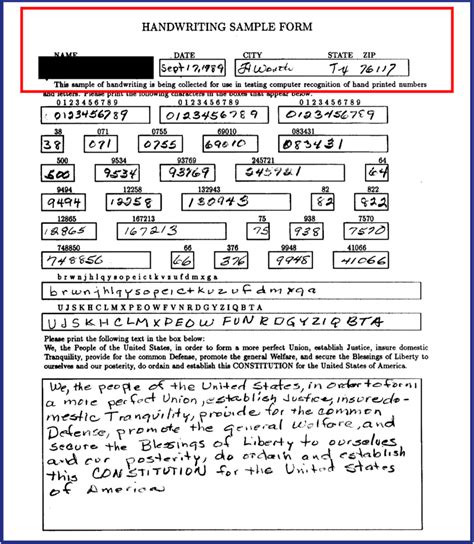 HANDWRITING SAMPLE FORM
NAME DATE CITY STATE ZIP
Sept 17, 1989 Ft Worth Tx 76117
This sample of handwriting is being collected for use in testing computer recognition of hand printed numbers
and letters. Please print the following characters in the boxes that appear below.
0 1 2 3 4 5 6 7 8 9 0 1 2 3 4 5 6 7 8 9 0 1 2 3 4 5 6 7 8 9
0123456789 0123456789 0123456789
38 071 0755 69010 083431
38 071 0755 69010 083431
500 9534 93769 245721 64
500 9534 93769 245721 64
9494 12258 132943 82 822
9494 12258 132943 82 822
12865 167213 75 938 7570
12865 167213 75 938 7570
748850 66 376 9948 41066
748850 66 376 9948 41066
b r w n j h l q y s o p e i c t k v z u f d m x g a
brwnjhlqysopeictkvzufdmxga
U J S K H C L M X P E O W F V N R D G Y Z I Q B T A
UJSKHCLMXPEOWFVNRDGYZIQBTA
Please print the following text in the box below:
We, the People of the United States, in order to form a more perfect Union, establish Justice, insure domestic
Tranquility, provide for the common Defense, promote the general Welfare, and secure the Blessings of Liberty to
ourselves and our posterity, do ordain and establish this CONSTITUTION for the United States of America.
We, the people of the United States, in order to form
a more perfect Union, establish Justice, insure do-
mestic Tranquility, provide for the common
Defense, promote the general Welfare, and
secure the Blessings of Liberty to ourselves
and our posterity, do ordain and establish
this CONSTITUTION for the United States
of America